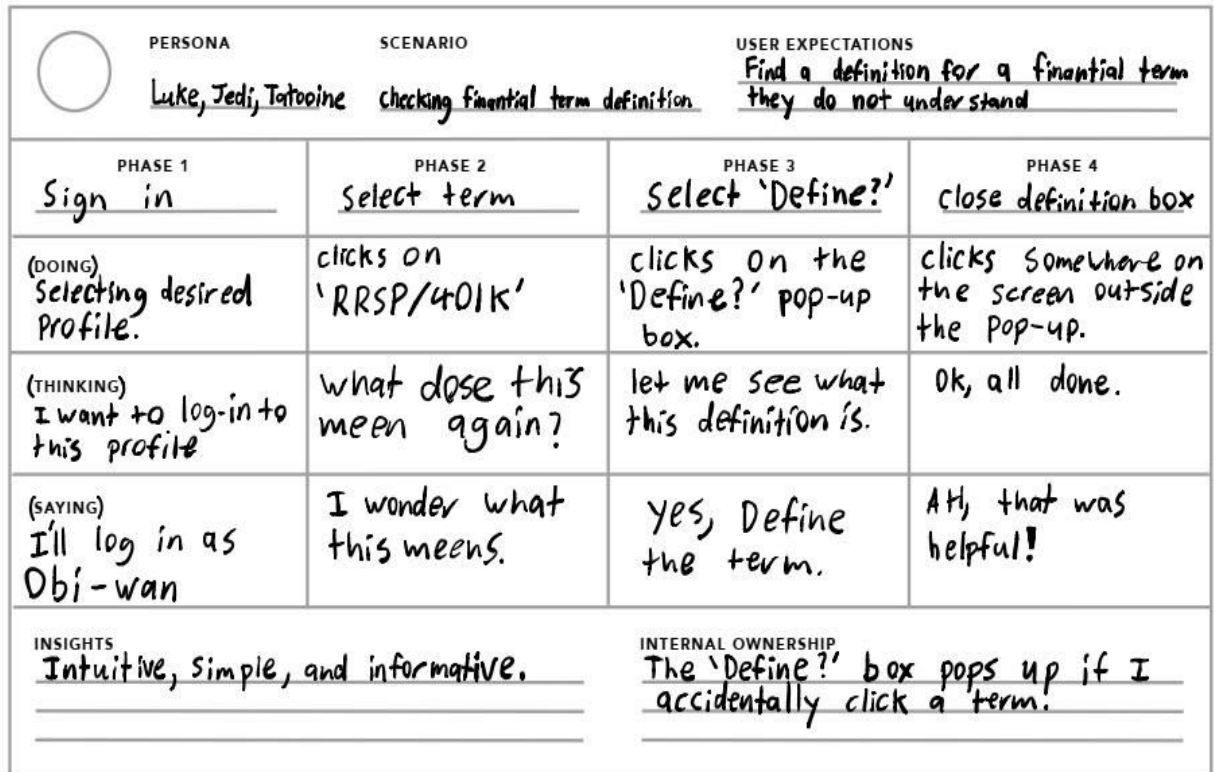 PERSONA
Luke, Jedi, Tatooine
SCENARIO
Checking finantial term definition
USER EXPECTATIONS
Find a definition for a finantial term
they do not understand
PHASE 1
Sign in
PHASE 2
Select term
PHASE 3
Select 'Define?'
PHASE 4
close definition box
(DOING)
Selecting desired
Profile.
clicks on
'RRSP/401K'
clicks on the
'Define?' pop-up
box.
clicks Somewhere on
the screen outside
the Pop-up.
(THINKING)
I want to log-in to
this profile
what dose this
meen again?
let me see what
this definition is.
Ok, all done.
(SAYING)
I'll log in as
Obi-wan
I wonder what
this meens.
Yes, Define
the term.
AH, that was
helpful!
INSIGHTS
Intuitive, Simple, and informative.
INTERNAL OWNERSHIP
The 'Define?' box pops up if I
accidentally click a term.